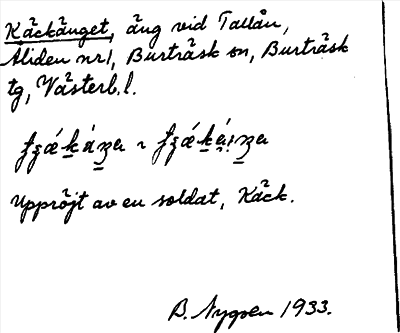 Käckänget, äng vid Tallån,
Åliden nr 1, Burträsk sn, Burträsk
tg, Västerb. l.
Uppröjt av en soldat, Käck.
B. Nygren 1933.